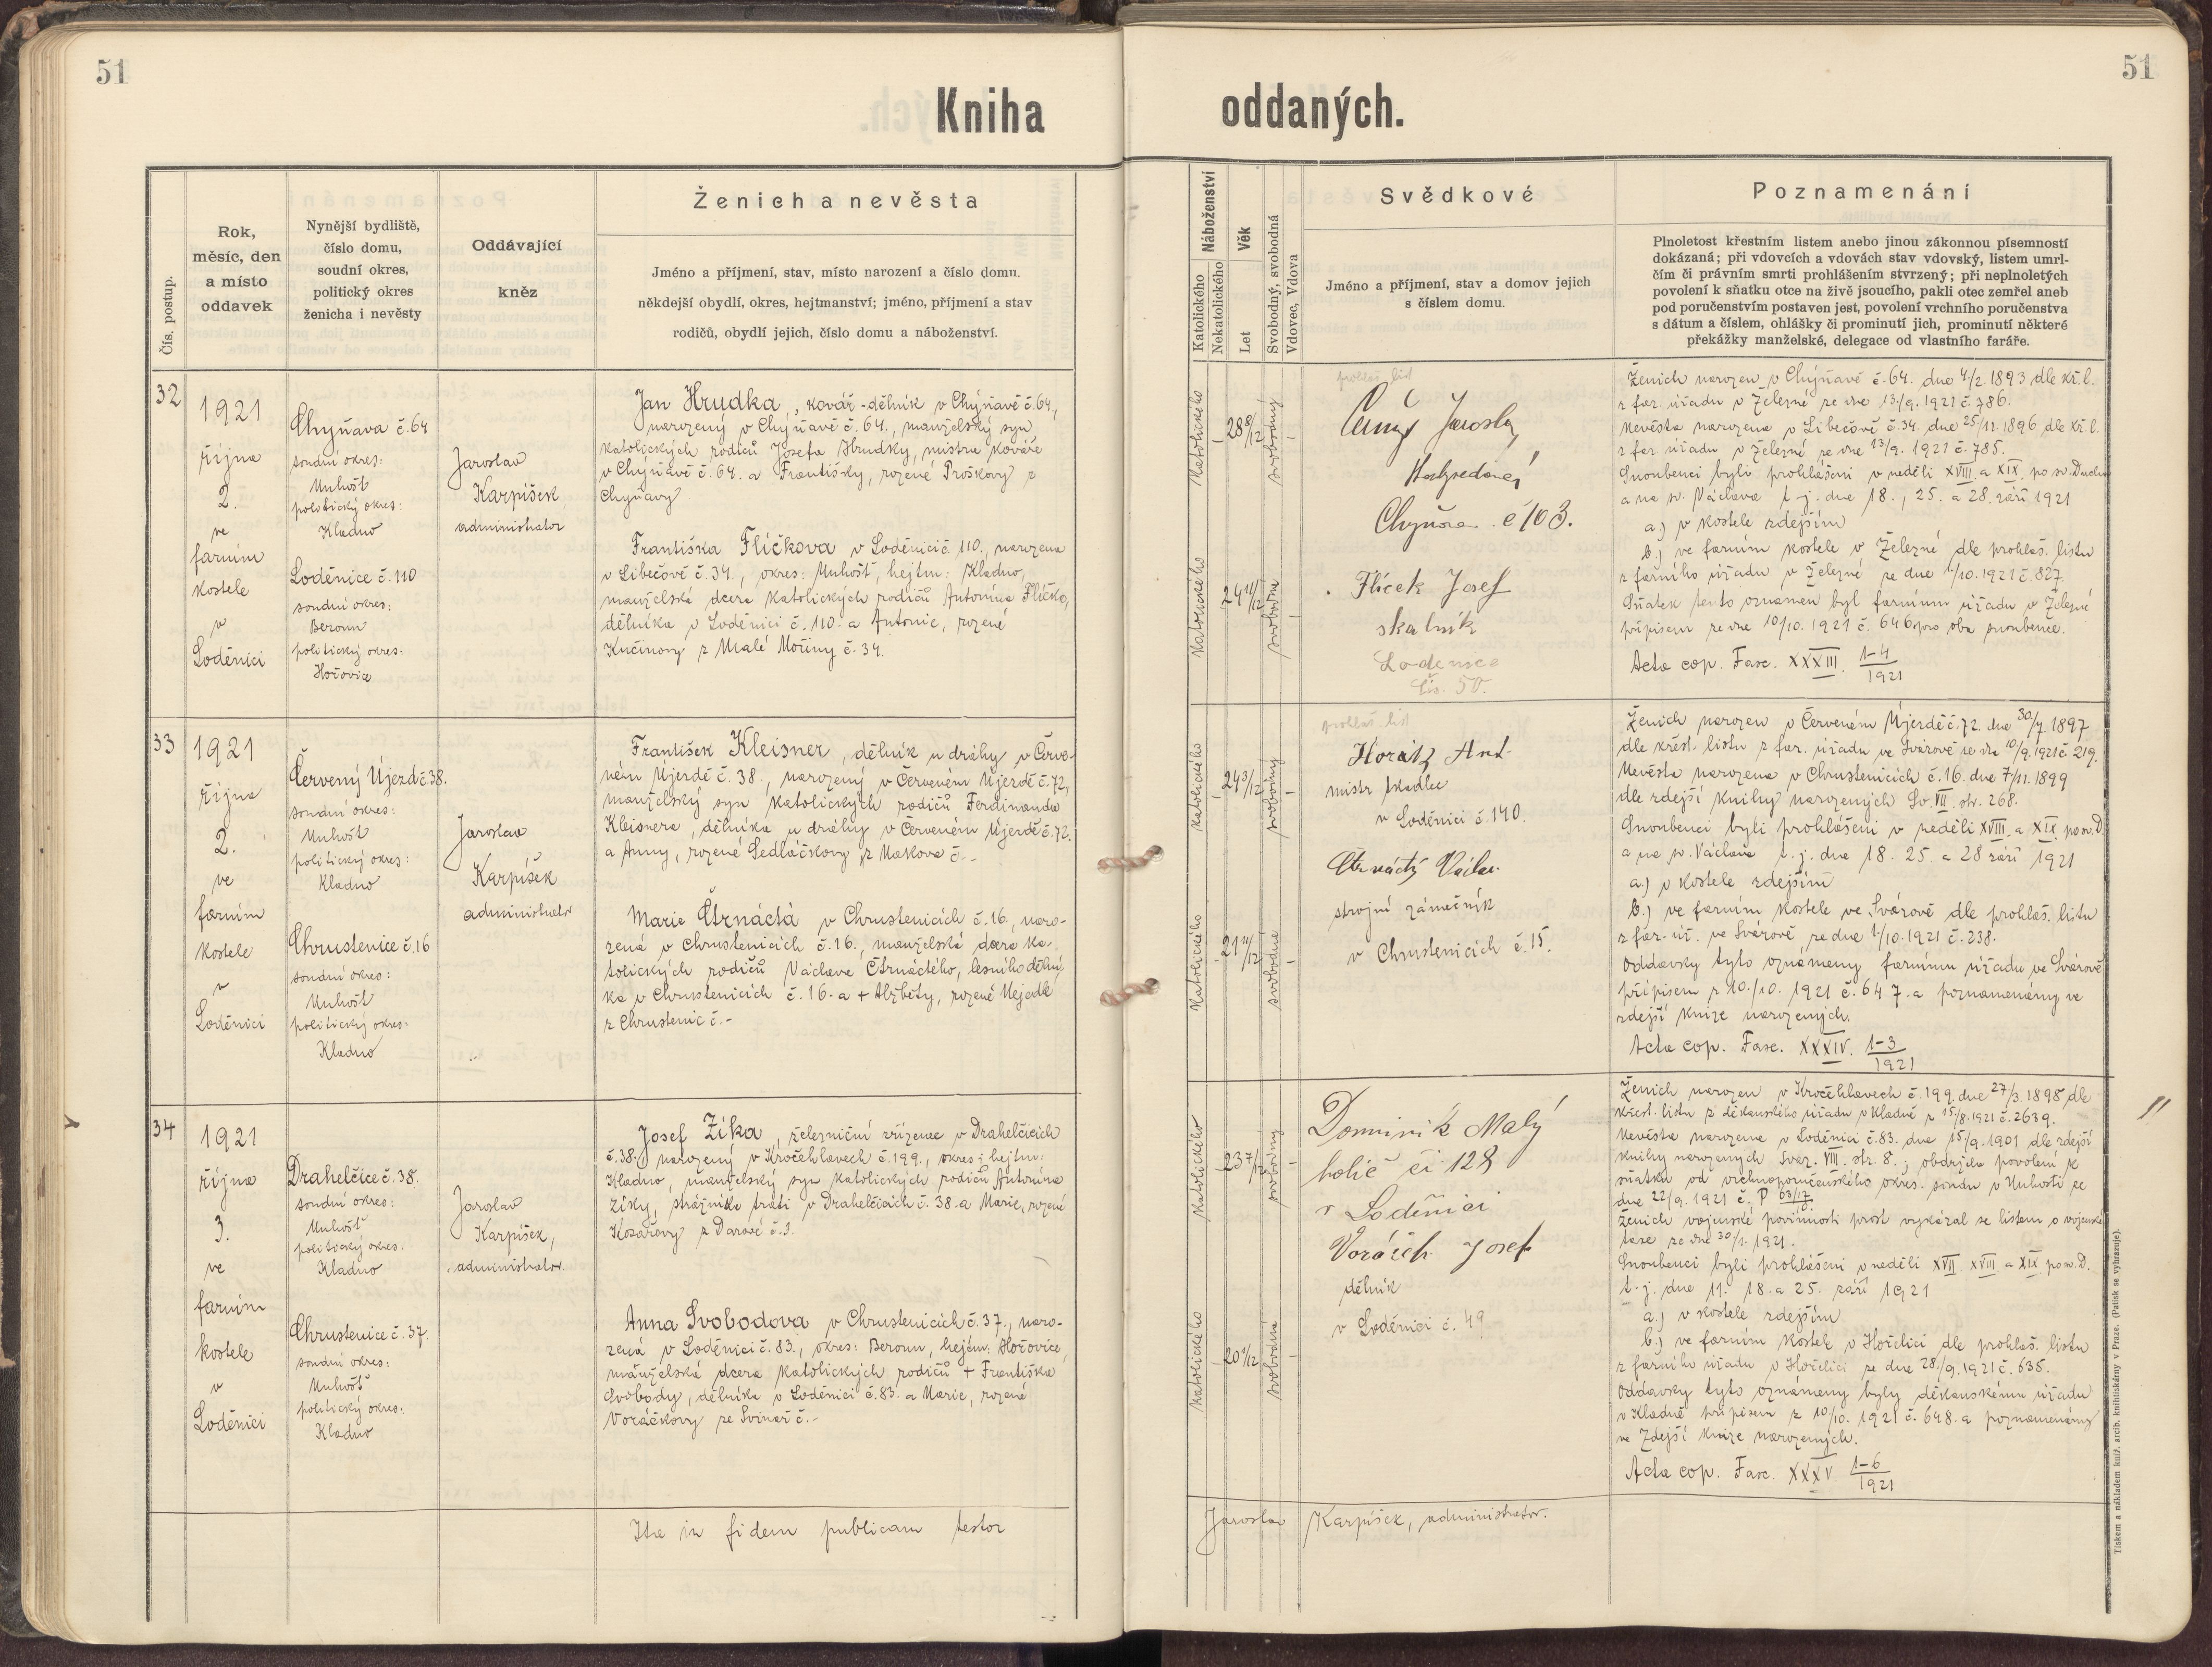 51
51
Kniha
oddaných.
Čís. postup.
Rok,
měsíc, den
a místo
oddavek
Nynější bydliště,
číslo domu,
soudní okres,
politický okres
ženicha i nevěsty
Oddávající
kněz
Ženich a nevěsta
Jméno a příjmení, stav, místo narození a číslo domu.
někdejší obydlí, okres, hejtmanství; jméno, příjmení a stav
rodičů, obydlí jejich, číslo domu a náboženství.
32
1921
října
2.
ve
farním
kostele
v
Loděnici
Chyňava č. 64
soudní okres:
Unhošť
politický okres:
Kladno
Loděnice č. 110
soudní okres:
Beroun
politický okres:
Hořovice
Jaroslav
Karpíšek
administrator
Jan Hrudka, kovář-dělník v Chyňavě č. 64,
narozený v Chyňavě č. 64., manželský syn
katolických rodičů Josefa Hrudky, mistra kováře
v Chyňavě č. 64. a Františky, rozené Proškovy z
Chyňavy
Františka Flíčkova v Loděnici č. 110., narozena
v Libečově č. 34., okres: Unhošť, hejtm: Kladno,
manželská dcera katolických rodičů Antonína Flíčka,
dělníka v Loděnici č. 110. a Antonie, rozené
Kučinovy z Malé Mořiny č. 34.
33
1921
října
2.
ve
farním
kostele
v
Loděnici
Červený Újezd č. 38.
soudní okres:
Unhošť
politický okres:
Kladno
Chrustenice č. 16
soudní okres:
Unhošť
politický okres:
Kladno
Jaroslav
Karpíšek
administrator
František Kleisner, dělník u dráhy v Červe-
ném Újezdě č. 38., narozený v Červeném Újezdě č. 72,
manželský syn katolických rodičů Ferdinanda
Kleisnera, dělníka u dráhy v Červeném Újezdě č. 72.
a Anny, rozené Sedláčkovy z Makova č.-
Marie Čtrnáctá v Chrustenicích č. 16., naro-
zená v Chrustenicích č. 16., manželská dcera ka-
tolických rodičů Václava Čtrnáctého, lesního dělní-
ka v Chrustenicích č. 16. a + Alžběty, rozené Nejedlé
z Chrustenic č.-
34
1921
října
3.
ve
farním
kostele
v
Loděnici
Drahelčice č. 38.
soudní okres:
Unhošť
politický okres:
Kladno
Chrustenice č. 37.
soudní okres:
Unhošť
politický okres:
Kladno
Jaroslav
Karpíšek,
administrator.
Josef Zíka, železniční zřízenec v Drahelčicích
č. 38. narozený v Kročehlavech č. 199., okres i hejtm:
Kladno, manželský syn katolických rodičů Antonína
Zíky, strážníka trati v Drahelčicích č. 38. a Marie, rozené
Kozařovy z Darové č. 3.
Anna Svobodova v Chrustenicích č. 37., naro-
zená v Loděnici č. 83., okres: Beroun, hejtm: Hořovice,
manželská dcera katolických rodičů + Františka
Svobody, dělníka v Loděnici č. 83. a Marie, rozené
Voráčkovy ze Svinař č.-
Ita in fidem publicam testor
Náboženství
Katolického
Nekatolického
Věk
Let
Svobodný, svobodná
Vdovec, Vdova
Svědkové
Jméno a příjmení, stav a domov jejich
s číslem domu.
Poznamenání
Plnoletost křestním listem anebo jinou zákonnou písemností
dokázaná; při vdovcích a vdovách stav vdovský, listem umrl-
čím či právním smrti prohlášením stvrzený; při neplnoletých
povolení k sňatku otce na živě jsoucího, pakli otec zemřel aneb
pod poručenstvím postaven jest, povolení vrchního poručenstva
s dátum a číslem, ohlášky či prominutí jich, prominutí některé
překážky manželské, delegace od vlastního faráře.
Katolického
28 8/12
svobodný
Katolického
24 11/12
svobodná
prohláš. list
Černý Jaroslav
Chyňava č 103.
Flíček Josef
skalník
Lodenice
čís. 50.
Ženich narozen v Chyňavě č. 64. dne 4/2. 1893 dle kř. l.
z far. úřadu v Železné ze dne 13/9. 1921 č. 786.
Nevěsta narozena v Libečově č. 34. dne 25/11. 1896 dle kř. l.
z far. úřadu v Železné ze dne 13/9. 1921 č. 785.
Snoubenci byli prohlášeni v neděli XVIII. a XIX. po sv. Duchu
a na sv. Václava t. j. dne 18., 25. a 28. září 1921
a.) v kostele zdejším
b.) ve farním kostele v Železné dle prohláš. listu
z farního úřadu v Železné ze dne 1/10. 1921 č. 827.
Sňatek tento oznámen byl farnímu úřadu v Železné
přípisem ze dne 10/10. 1921 č. 646 pro oba snoubence.
Acta cop. Fasc. XXXIII. 1-4/1921
Katolického
24 3/12
svobodný
Katolického
21 11/12
svobodná
prohláš. list
Horátz Ant.
mistr tkadlec
v Loděnici č. 140.
Čtrnáctý Václav
strojní zámečník
v Chrustenicích č. 15.
Ženich narozen v Červeném Újezdě č. 72. dne 30/7. 1897
dle křest. listu z far. úřadu ve Svárově ze dne 10/9. 1921 č. 219.
Nevěsta narozena v Chrustenicích č. 16. dne 7/11. 1899
dle zdejší knihy narozených Sv. VII. str. 268.
Snoubenci byli prohlášeni v neděli XVIII. a XIX. po sv. D.
a na sv. Václava t. j. dne 18. 25. a 28 září 1921
a.) v kostele zdejším
b.) ve farním kostele ve Svárově dle prohláš. listu
z far. úř. ve Svárově, ze dne 1/10. 1921 č. 238.
Oddavky tyto oznámeny farnímu úřadu ve Svárově
přípisem z 10./10. 1921 č. 647. a poznamenány ve
zdejší knize narozených.
Acta cop. Fasc. XXXIV. 1-3/1921
Katolického
23 7/12
svobodný
Katolického
20 1/12
svobodná
Dominik Malý
holič či 128
v Loděnici
Voráček Josef
dělník
v Loděnici č. 49
Ženich narozen v Kročehlavech č. 199. dne 27/3. 1898 dle
křest. listu z děkanského úřadu v Kladně z 15/8. 1921 č. 2639.
Nevěsta narozena v Loděnici č. 83. dne 15/9. 1901 dle zdejší
knihy narozených Svaz. VIII. str. 8.; obdržela povolení k
sňatku od vrchnoporučenského okres. soudu v Unhošti ze
dne 22/9. 1921 č. P 63/17.
Ženich vojenské povinnosti prost vykázal se listem o vojenské
tase ze dne 30/1. 1921.
Snoubenci byli prohlášeni v neděli XVII. XVIII. a XIX. po sv. D.
t. j. dne 11. 18. a 25. září 1921
a.) v kostele zdejším
b.) ve farním kostele v Hořelici dle prohláš. listu
z farního úřadu v Hořelici ze dne 28./9. 1921 č. 635.
Oddavky tyto oznámeny byly děkanskému úřadu
v Kladně přípisem z 10/10. 1921 č. 648. a poznamenány
ve zdejší knize narozených.
Acta cop. Fasc. XXXV. 1-6/1921
Jaroslav Karpíšek, administrator.
Tiskem a nákladem kníž. arcib. knihtiskárny v Praze. (Patisk se vyhrazuje).